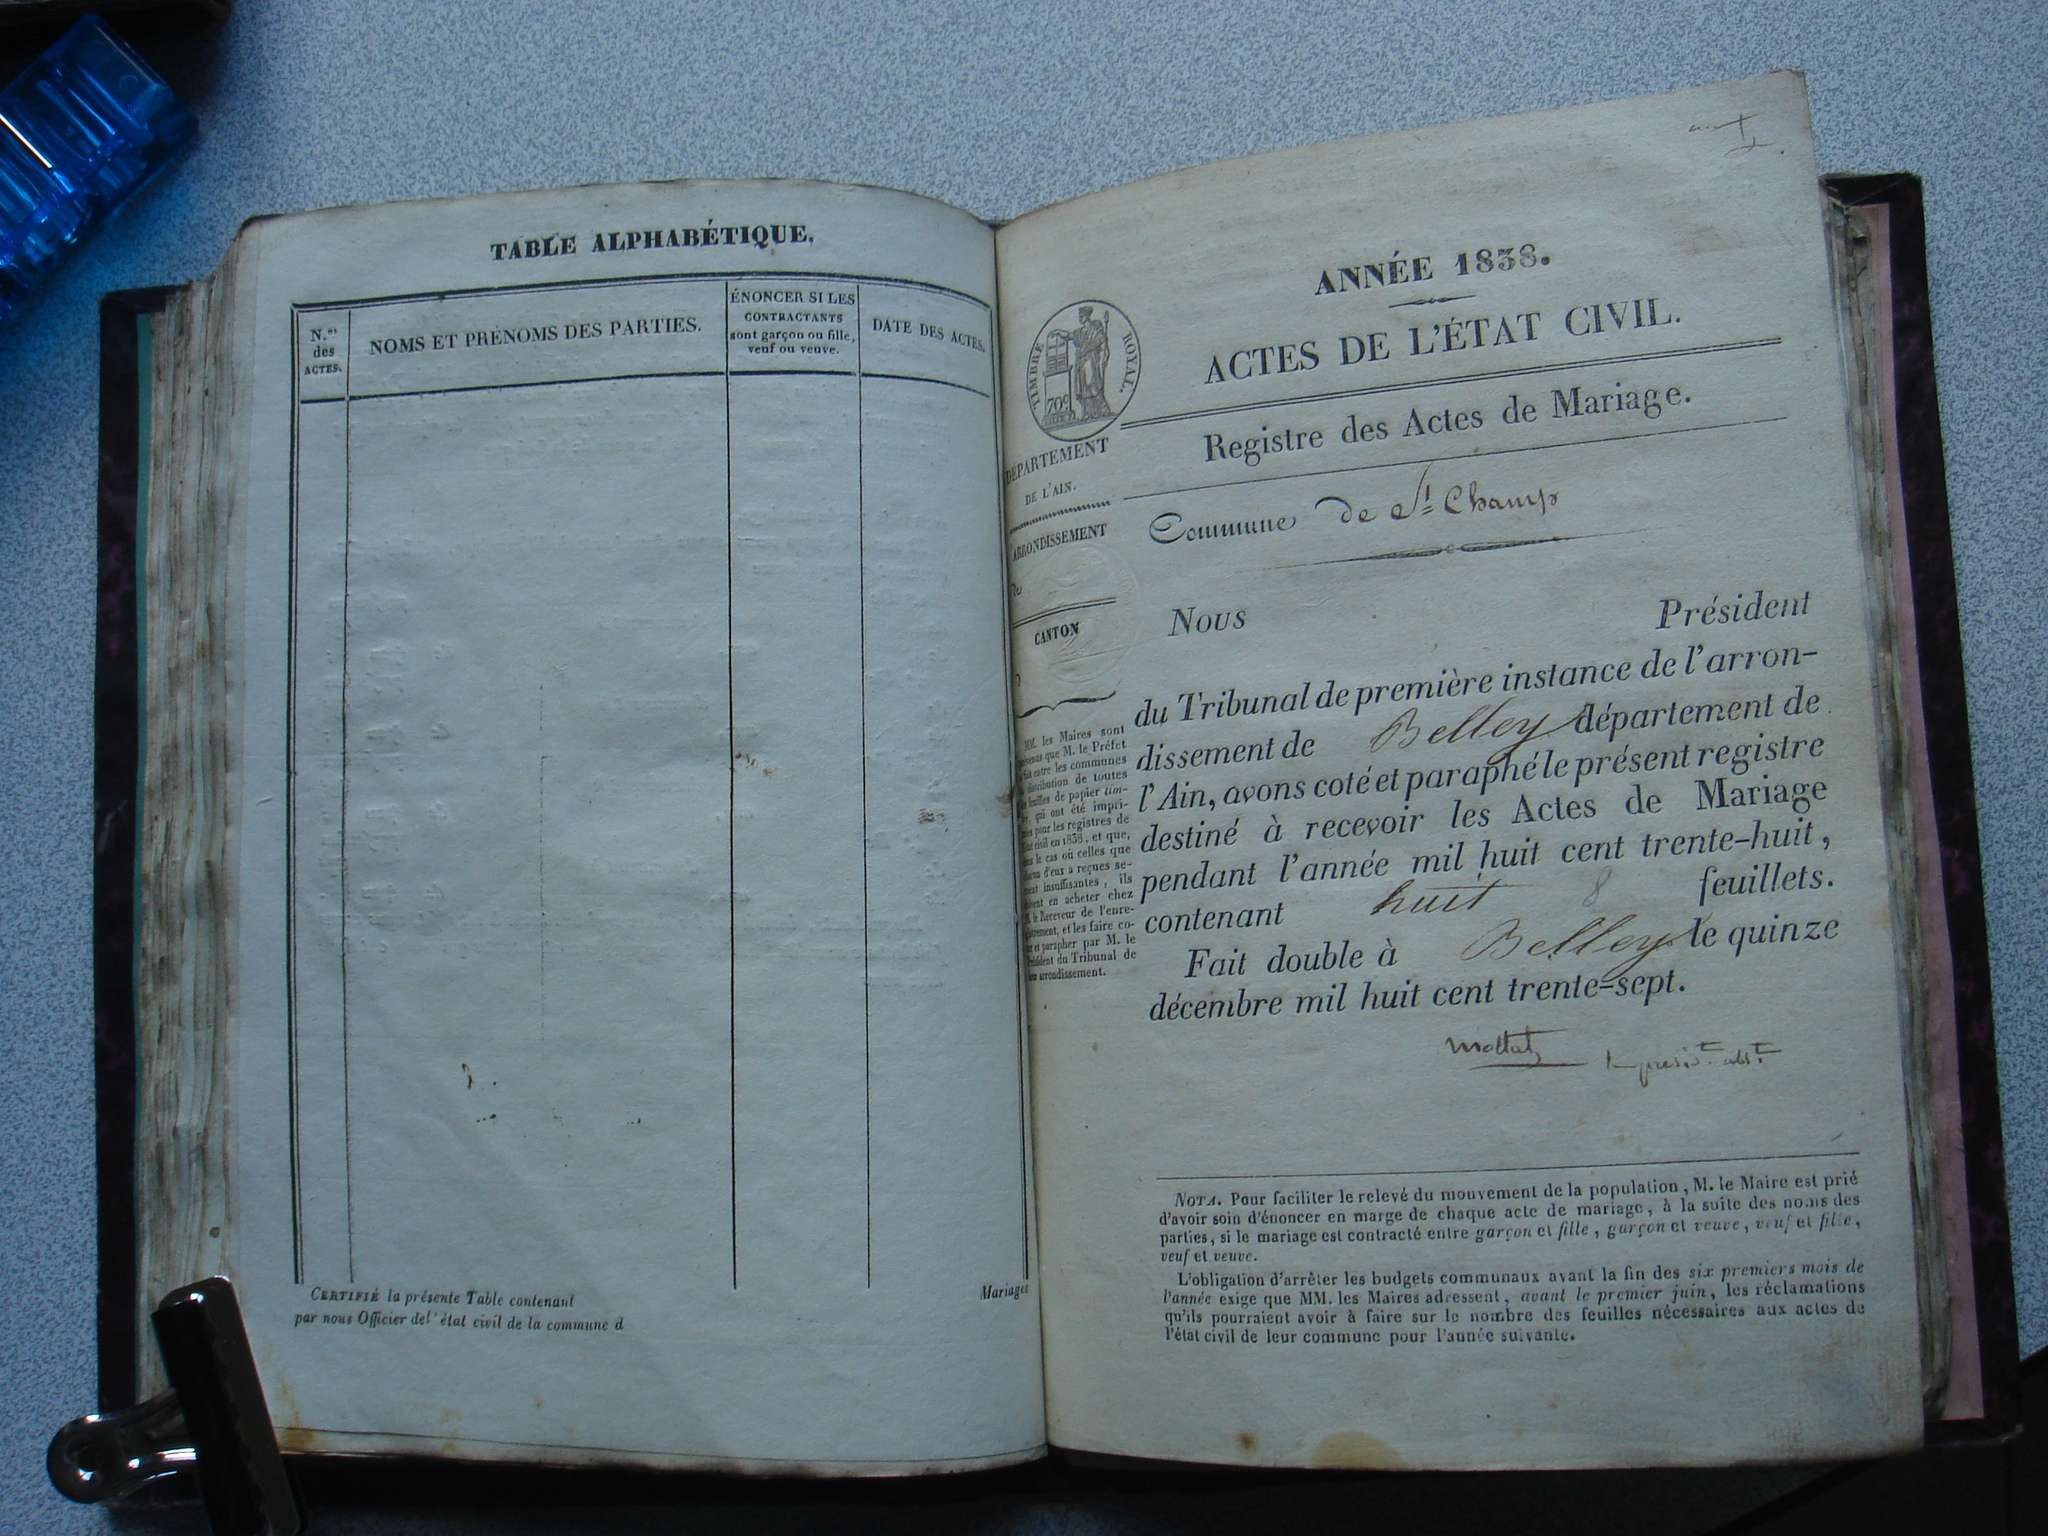 TABLE ALPHABÉTIQUE.
N.os
des
ACTES.
NOMS ET PRÉNOMS DES PARTIES.
ÉNONCER SI LES
CONTRACTANTS
sont garçon ou fille,
veuf ou veuve.
DATE DES ACTES.
CERTIFIÉ la présente Table contenant
Mariages
par nous Officier de l'état civil de la commune d
ANNÉE 1838.
ACTES DE L'ÉTAT CIVIL.
TIMBRE ROYAL.
70c
Registre des Actes de Mariage.
DÉPARTEMENT
DE L'AIN.
ARRONDISSEMENT
de
CANTON
Commune de St Champ
MM. les Maires sont
que M. le Préfet
fait entre les communes
distribution de toutes
feuilles de papier tim-
qui ont été impri-
pour les registres de
civil en 1838, et que,
le cas où celles que
d'eux a reçues se-
insuffisantes, ils
en acheter chez
le Receveur de l'enre-
et les faire co-
et parapher par M. le
Président du Tribunal de
arrondissement.
Nous Président
du Tribunal de première instance de l'arron-
dissement de Belley département de
l'Ain, avons coté et paraphé le présent registre
destiné à recevoir les Actes de Mariage
pendant l'année mil huit cent trente-huit,
contenant huit 8 feuillets.
Fait double à Belley le quinze
décembre mil huit cent trente-sept.
NOTA. Pour faciliter le relevé du mouvement de la population, M. le Maire est prié
d'avoir soin d'énoncer en marge de chaque acte de mariage, à la suite des noms des
parties, si le mariage est contracté entre garçon et fille, garçon et veuve, veuf et fille,
veuf et veuve.
L'obligation d'arrêter les budgets communaux avant la fin des six premiers mois de
l'année exige que MM. les Maires adressent, avant le premier juin, les réclamations
qu'ils pourraient avoir à faire sur le nombre des feuilles nécessaires aux actes de
l'état civil de leur commune pour l'année suivante.